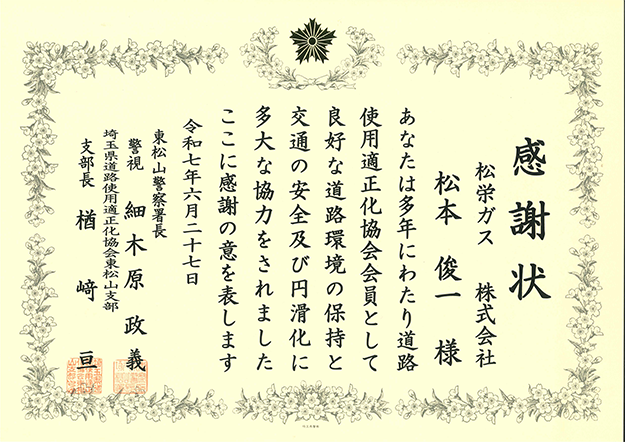 感謝状
松栄ガス 株式会社
松本 俊一 様
あなたは多年にわたり道路
使用適正化協会会員として
良好な道路環境の保持と
交通の安全及び円滑化に
多大な協力をされました
ここに感謝の意を表します
令和七年六月二十七日
東松山警察署長
警視 細木原 政義
埼玉県道路使用適正化協会東松山支部
支部長 楢﨑 亘